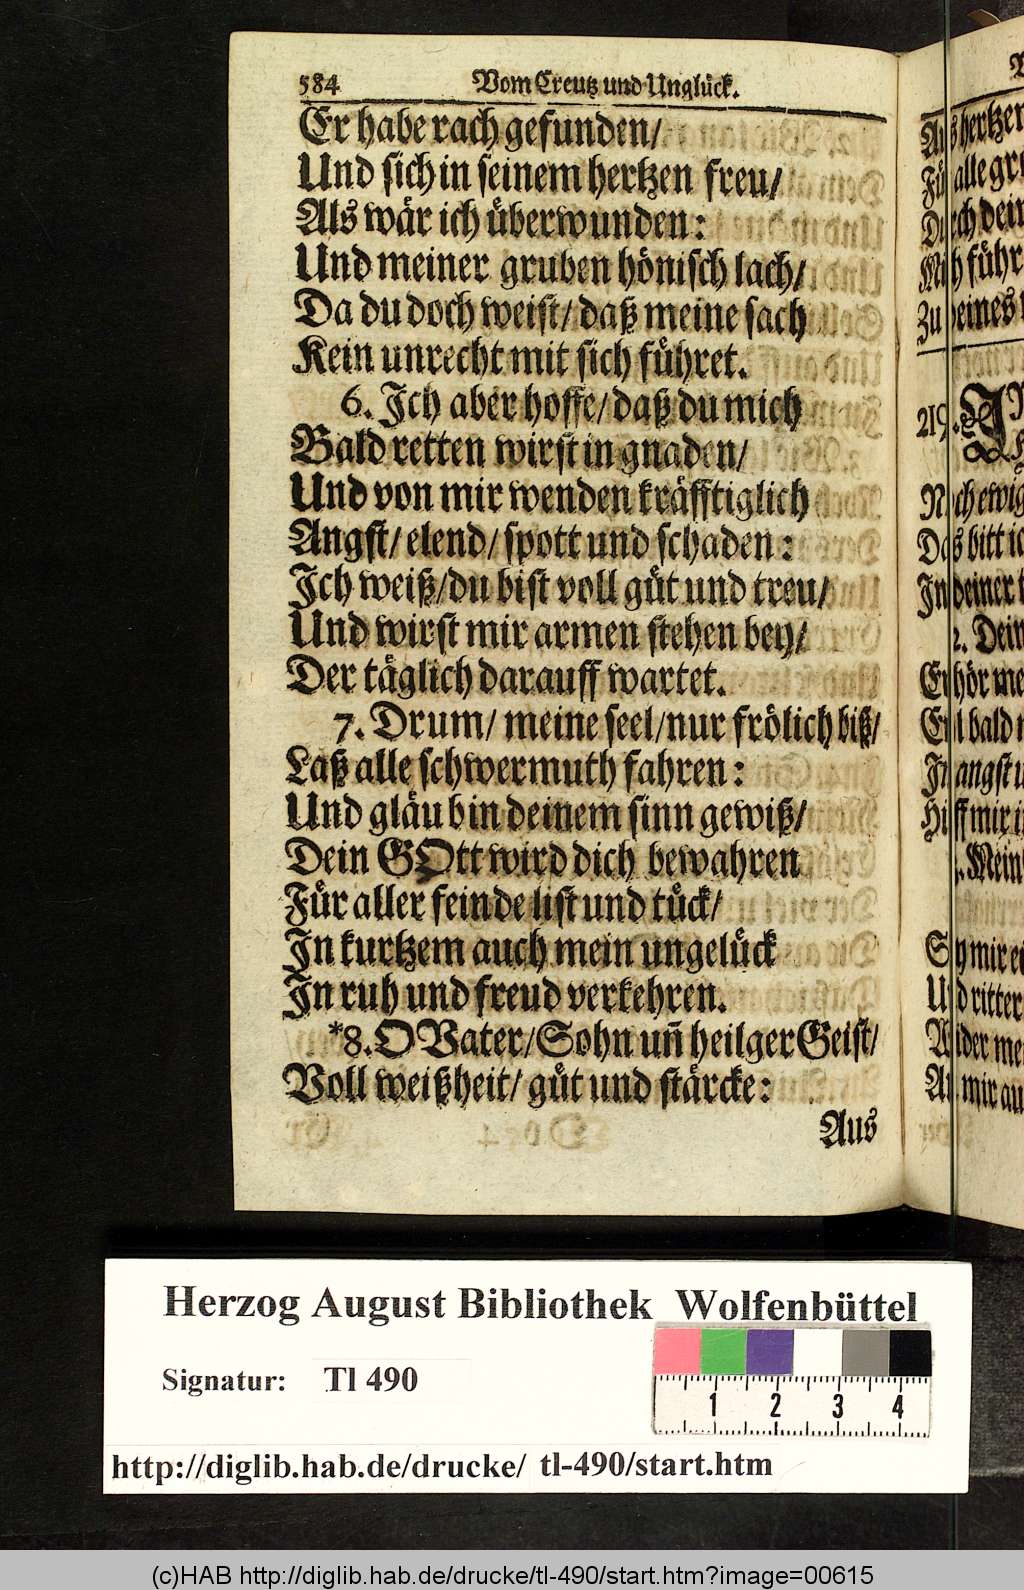 584 Vom Creutz und Unglück.
Er habe rach gefunden/
Und sich in seinem hertzen freu/
Als wär ich überwunden:
Und meiner gruben hönisch lach/
Da du doch weist/ daß meine sach
Kein unrecht mit sich führet.
6. Ich aber hoffe/ daß du mich
Bald retten wirst in gnaden/
Und von mir wenden kräfftiglich
Angst/ elend/ spott und schaden:
Ich weiß/ du bist voll güt und treu/
Und wirst mir armen stehen bey/
Der täglich darauff wartet.
7. Drum/ meine seel/ nur frölich biß/
Laß alle schwermuth fahren:
Und gläub in deinem sinn gewiß/
Dein GOtt wird dich bewahren
Für aller feinde list und tück/
In kurtzem auch mein ungelück
In ruh und freud verkehren.
*8. O Vater/ Sohn uñ heilger Geist/
Voll weißheit/ güt und stärcke:
Aus
219.
alle
führ
deines
ewig
bitt
deiner
2. Dein
bald
angst
mir
ritter
mir
Herzog August Bibliothek Wolfenbüttel
Signatur: Tl 490
1 2 3 4
http://diglib.hab.de/drucke/ tl-490/start.htm
(c)HAB http://diglib.hab.de/drucke/tl-490/start.htm?image=00615